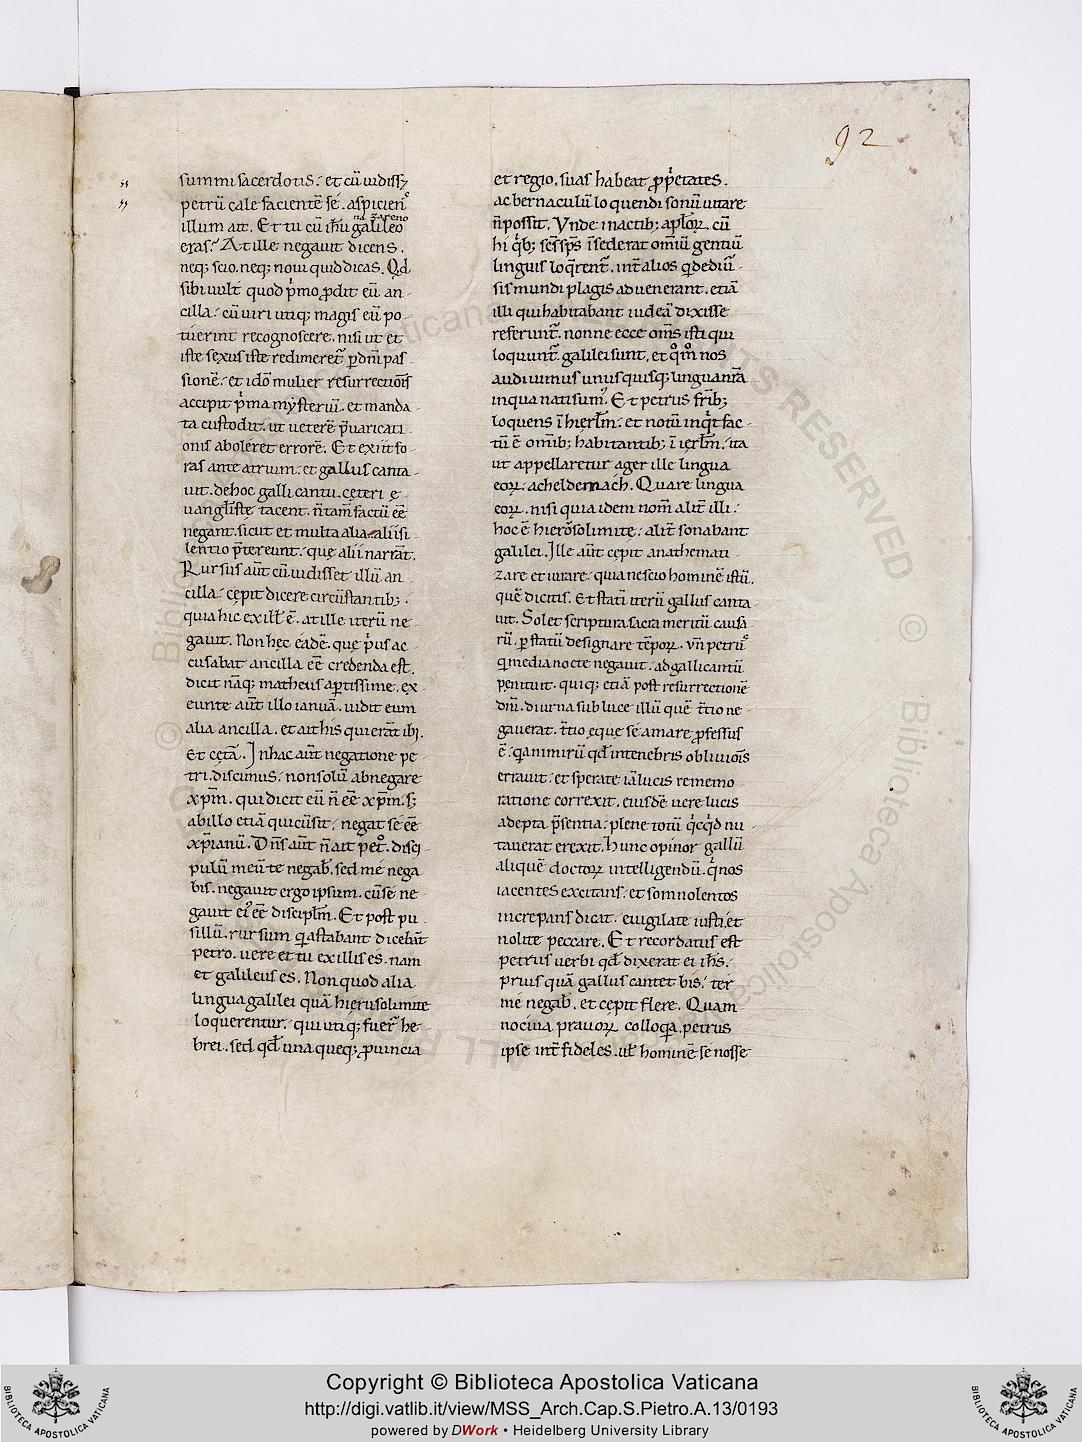 92
summi sacerdotis. et cū uidissꝫ
petrū cale facientē sé. aspicienſ
illum ait. Et tu cū ih̄u galileo
nazareno
eras. At ille negauit dicens.
neq; scio. neq; noui quid dicas. Qd̄
sibi uult̄ quod pͥmo ꝓdit eū an-
cilla. cū uiri utiq; magis eū po-
tuerint recognoscere. nisi ut et
iste sexus iste redimeret̄ ꝑ dn̄i pas-
sionē. et ido mulier resurrectiōis
accipit pͥma mẏsteriū. et manda-
ta custodit. ut ueterē p̄uaricati-
onis aboleret errorē. Et exiit fo-
ras ante atrium. et gallus canta-
uit. de hoc galli cantu. cęteri ę-
uangl̄iste tacent. n̄ tam̄ factū eē
negant. sicut et multa alia. alii si
lentio p̄tereunt. quę alii narrāt.
Rursus aūt cū uidisset illū an
cilla. cępit dicere circūstantib;.
quia hic ex ill' ē. at ille iterū ne-
gauit. Non hęc eadē. quę pͥus ac-
cusabat ancilla eē credenda est.
dicit nāq; matheus aꝑtissime. ex-
eunte aūt illo ianuā. uidit eum
alia ancilla. et ait his qui erāt ibi.
Et cęta. In hac aūt negatione pe-
tri. discimus. non solū abnegare
xp̄m. qui dicit eū n̄ eē xp̄m. s;
ab illo etiā qui cū sit. negat se eē
xp̄ianū. Dn̄s aūt n̄ ait pet̊. disci-
pulū meū te negab̄. sed mé nega-
bis. negauit ergo ipsum. cū se ne-
gauit ei' eē discipl̄m. Et post pu-
sillū. rursum qͥ astabant dicebāt
petro. uere et tu ex illis es. nam
et galileus es. Non quod alia
lingua galilei quā hierusolimite
loquerentur. qui utiq; fuer̄ he-
brei. sed qd̄ una queq; ꝓuincia
et regio. suas habeat ꝓpͥetates.
ac bernaculū loquendi sonū uitare
n̄ possit. Vnde in actib; apl'oꝝ. cū
hi qͥb; sc̄s sp̄s īsederat om̄iū gentiū
linguis loqrent̄. int̄ alios q de diū-
sis mundi plagis aduenerant. etiā
illi qui habitabant iudeā dixisse
referunt̄. nonne ecce om̄s isti qui
loquunt̄ galilei sunt. et q̊m̊ nos
audiuimus unusquisq; linguā nr̄ā
in qua nati sum'. Et petrus fr̄ib;
loquens ī hierl̄m. et notū inqͥt fac-
tū ē om̄ib; habitantib; ī ierl̄m. ita
ut appellaretur ager ille lingua
eoꝝ. acheldemach. Quare lingua
eoꝝ. nisi quia idem nom̄ alit̄ illi.
hoc ē hierosolimite. alit̄ sonabant
galilei. Ille aūt cępit anathemati-
zare et iurare. quia nescio hominē istū.
quē dicitis. Et statī iterū gallus canta-
uit. Solet scriptura sacra meritū causa-
rū. ꝑ statū designare tēpoꝝ. vn̄ petrus
qͥ media nocte negauit. ad galli cantū
penituit. qui q; etiā post resurrectionē
dn̄i. diurna sub luce illū quē t̄tio ne-
gauerat. t̄tio ęque se amare ꝓfessus
ē. qͣ nimirū qd̄ in tenebris obliuiōis
errauit. et sperate iā lucis rememo-
ratione correxit. eiusdē uere lucis
adepta p̄sentia. plene totū qͥcqͥd nu-
tauerat erexit. Hunc opinor gallū
aliquē doctoꝝ intelligendū. qͥ nos
iacentes excitans. et somnolentos
increpans dicat. euigilate iusti. et
nolite peccare. Et recordatus est
petrus uerbi qd̄ dixerat ei ih̄s.
prius quā gallus cantet bis. ter
mé negab̄. et cępit flere. Quam
nociua prauoꝝ colloqͣ. petrus
ipse int̄ fideles. ul̄ hominē se nosse
Copyright © Biblioteca Apostolica Vaticana
http://digi.vatlib.it/view/MSS_Arch.Cap.S.Pietro.A.13/0193
powered by DWork • Heidelberg University Library